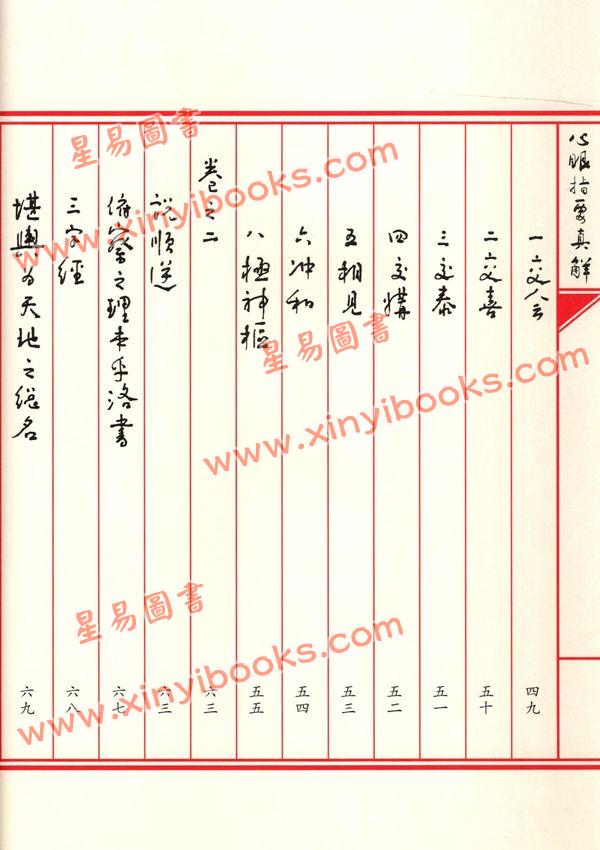 心眼指要真解
一交會 四九
二交喜 五十
三交泰 五一
四交媾 五二
五相見 五三
六沖和 五四
八極神樞 五五
卷之二 六三
說順逆 六三
俯察之理本乎洛書 六七
三字經 六八
堪輿為天地之總名 六九
星易圖書
www.xinyibooks.com
星易圖書
www.xinyibooks.com
星易圖書
www.xinyibooks.com